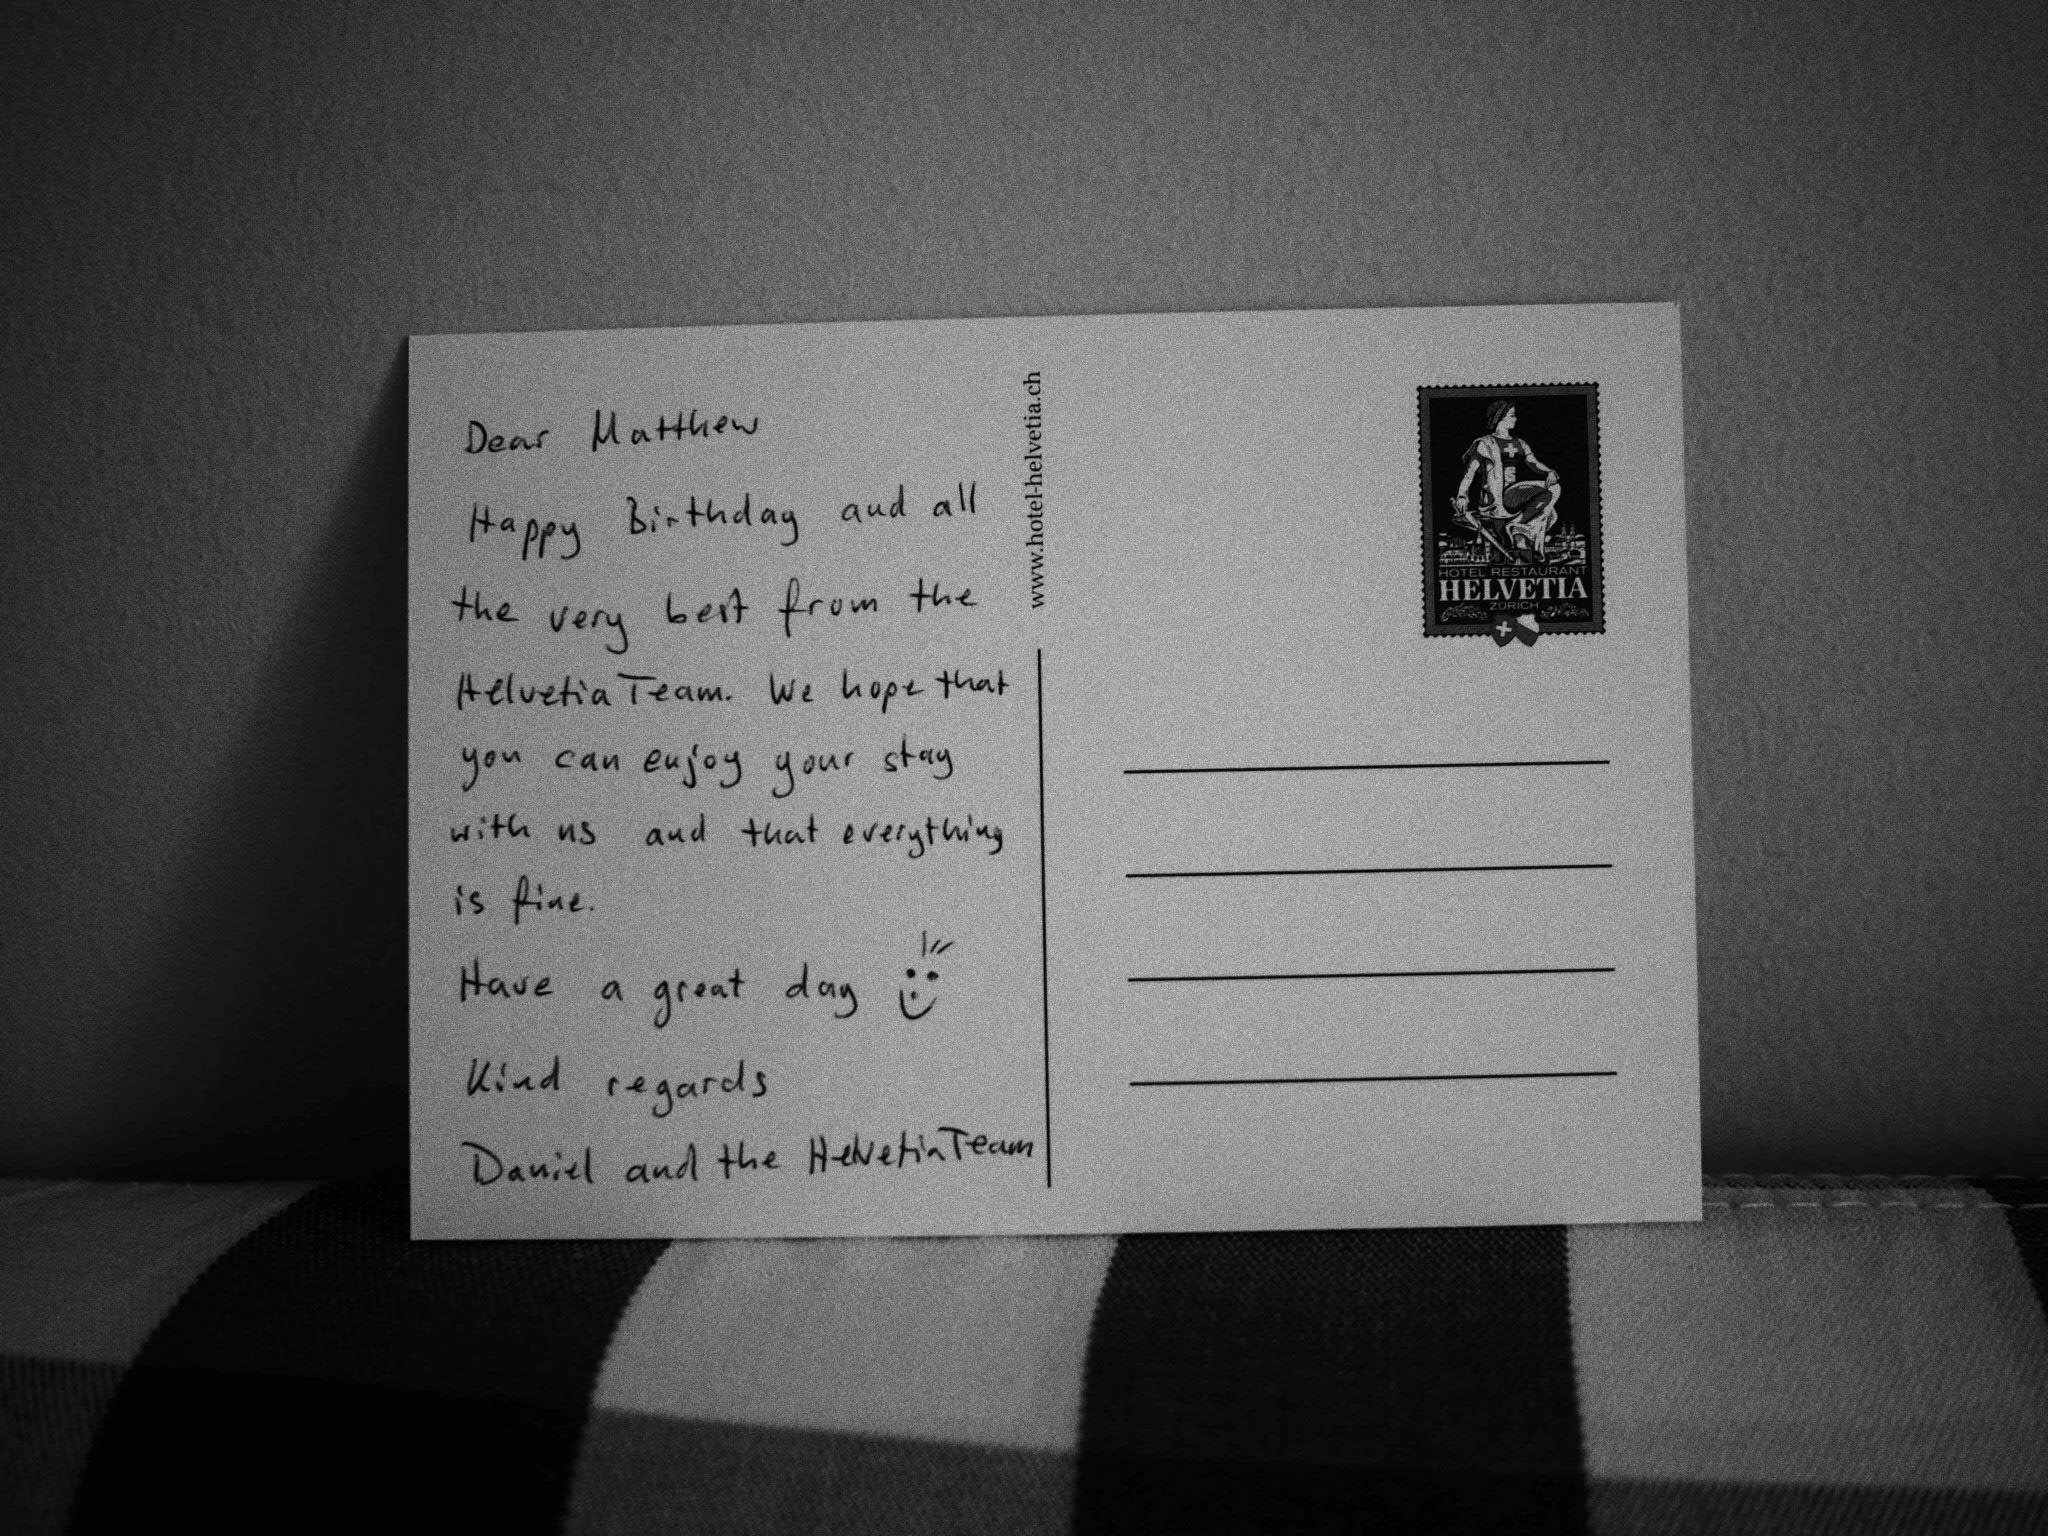 Dear Matthew
Happy Birthday and all
the very best from the
Helvetia Team. We hope that
you can enjoy your stay
with us and that everything
is fine.
Have a great day
Kind regards
Daniel and the Helvetia Team
www.hotel-helvetia.ch
HOTEL RESTAURANT
HELVETIA
ZÜRICH